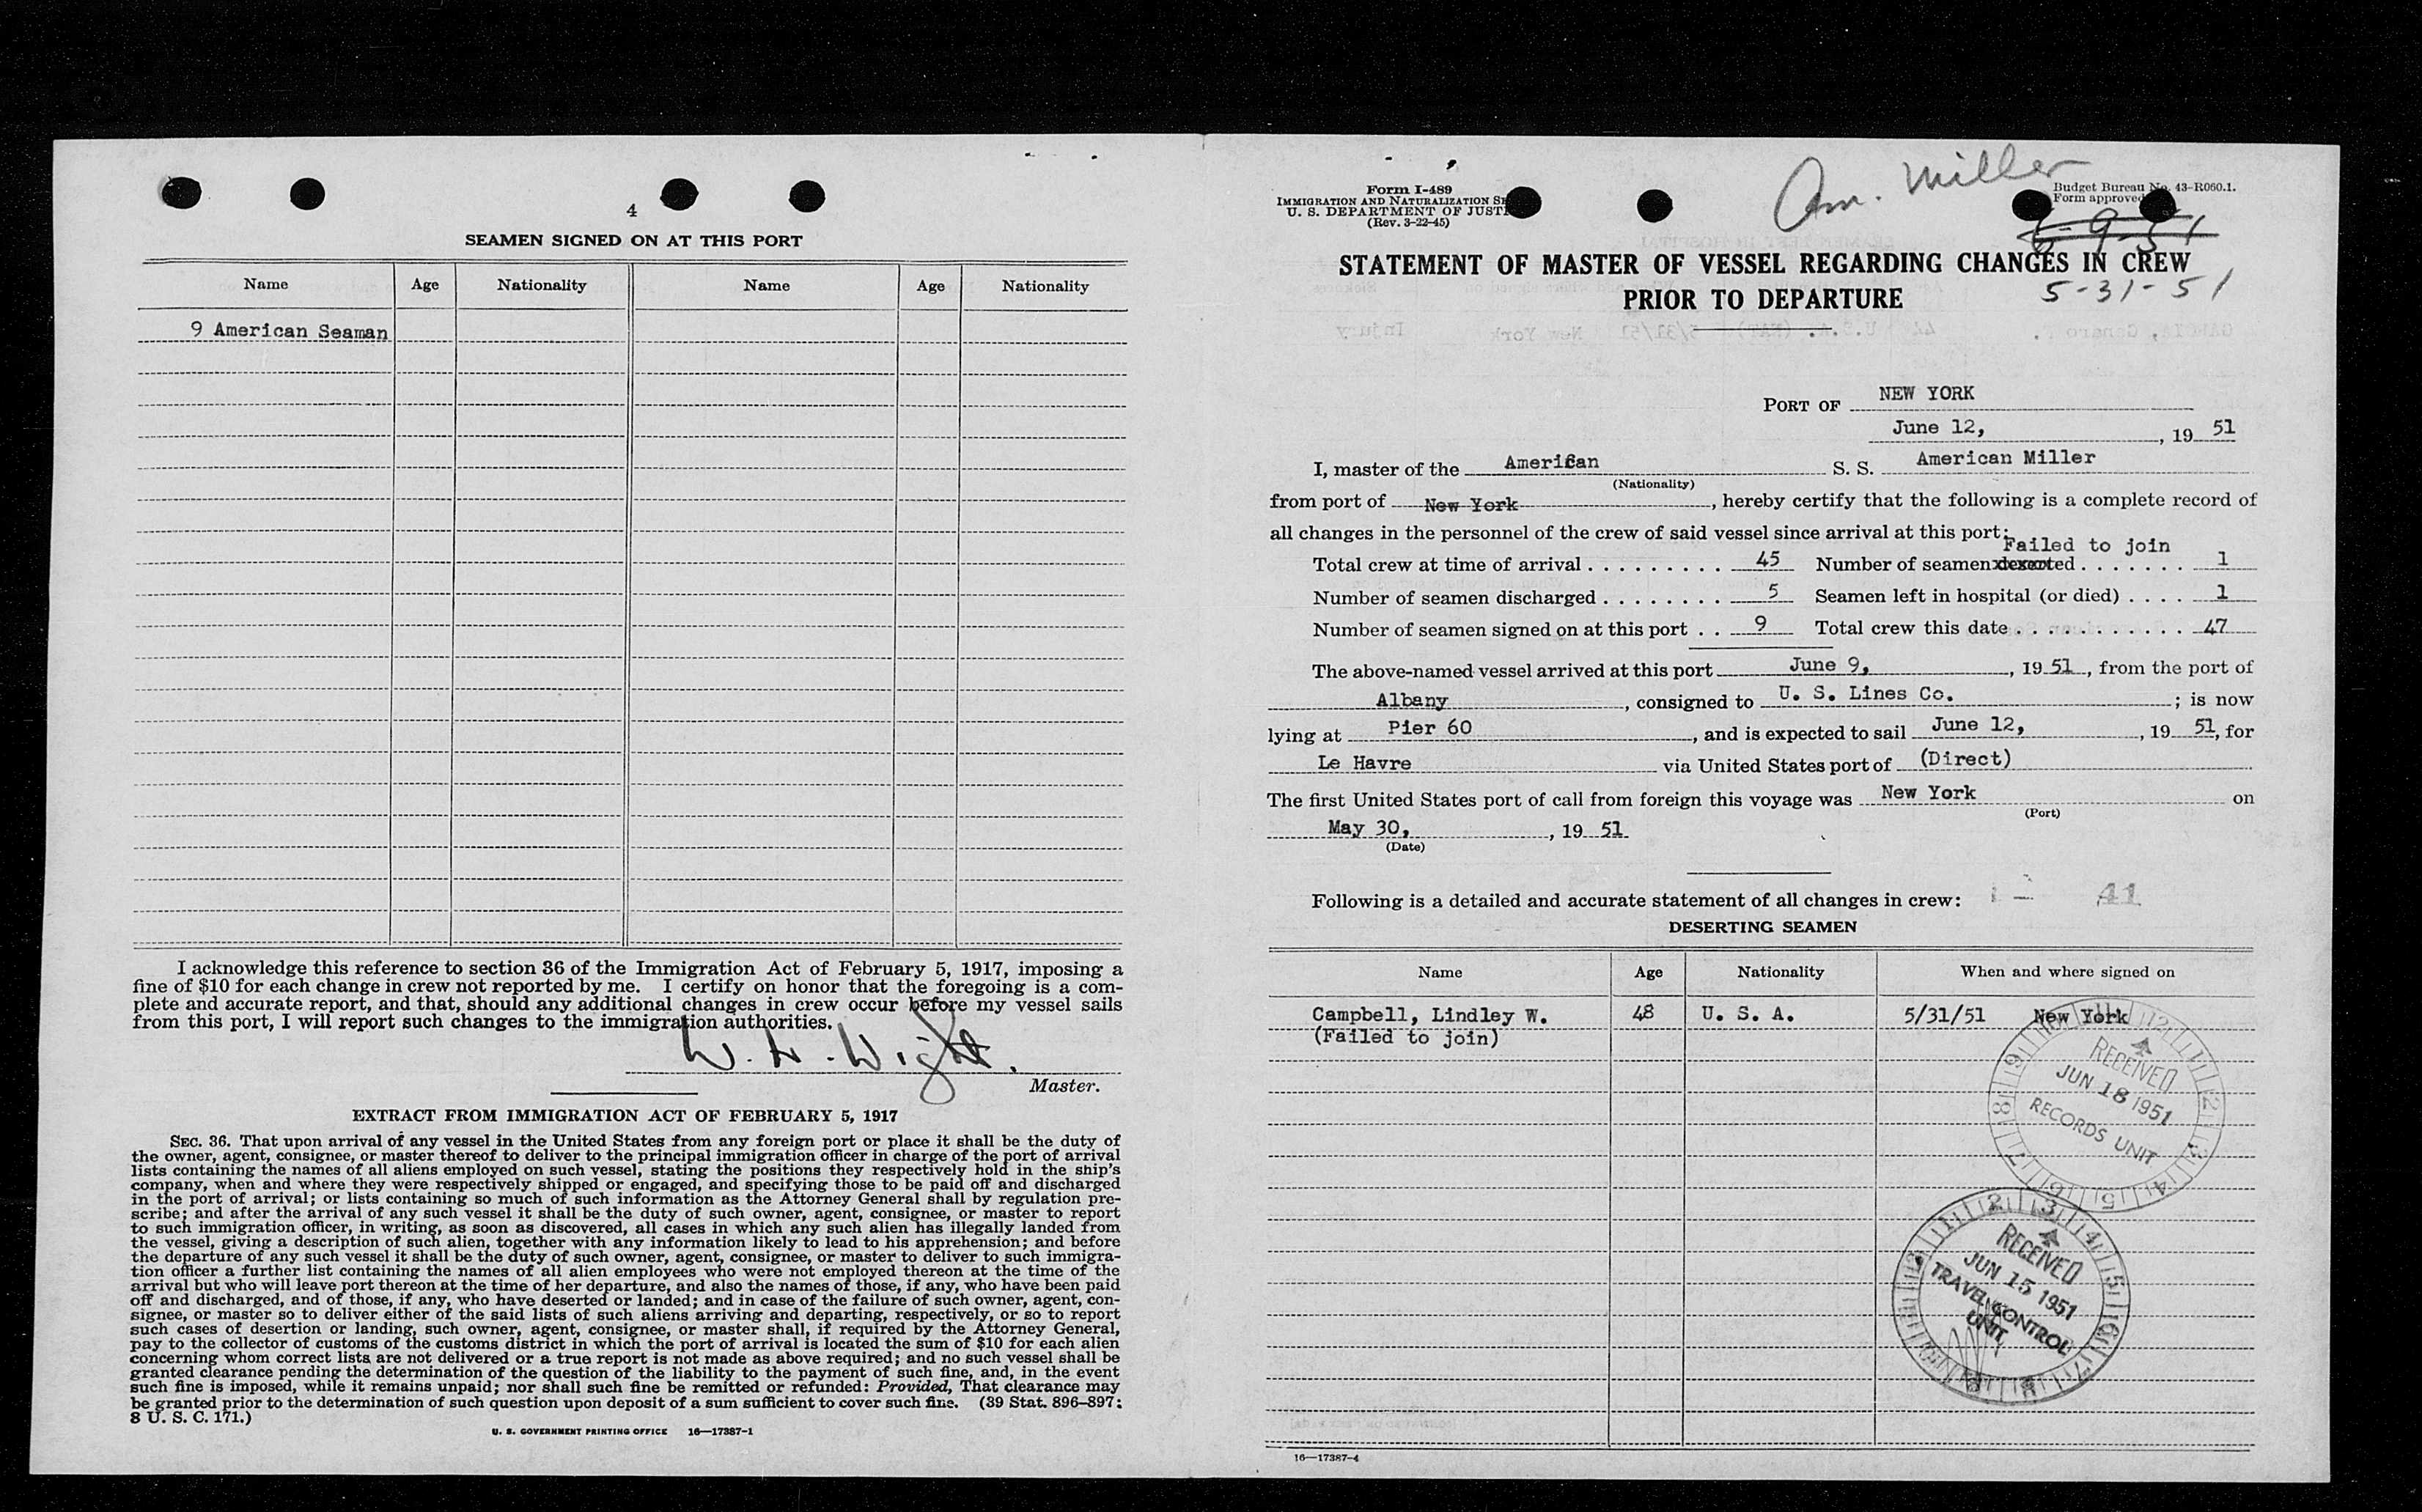 4
SEAMEN SIGNED ON AT THIS PORT
Name Age Nationality Name Age Nationality
9 American Seaman
I acknowledge this reference to section 36 of the Immigration Act of February 5, 1917, imposing a
fine of $10 for each change in crew not reported by me. I certify on honor that the foregoing is a com-
plete and accurate report, and that, should any additional changes in crew occur before my vessel sails
from this port, I will report such changes to the immigration authorities.
W. W. Wight.
Master.
EXTRACT FROM IMMIGRATION ACT OF FEBRUARY 5, 1917
SEC. 36. That upon arrival of any vessel in the United States from any foreign port or place it shall be the duty of
the owner, agent, consignee, or master thereof to deliver to the principal immigration officer in charge of the port of arrival
lists containing the names of all aliens employed on such vessel, stating the positions they respectively hold in the ship's
company, when and where they were respectively shipped or engaged, and specifying those to be paid off and discharged
in the port of arrival; or lists containing so much of such information as the Attorney General shall by regulation pre-
scribe; and after the arrival of any such vessel it shall be the duty of such owner, agent, consignee, or master to report
to such immigration officer, in writing, as soon as discovered, all cases in which any such alien has illegally landed from
the vessel, giving a description of such alien, together with any information likely to lead to his apprehension; and before
the departure of any such vessel it shall be the duty of such owner, agent, consignee, or master to deliver to such immigra-
tion officer a further list containing the names of all alien employees who were not employed thereon at the time of the
arrival but who will leave port thereon at the time of her departure, and also the names of those, if any, who have been paid
off and discharged, and of those, if any, who have deserted or landed; and in case of the failure of such owner, agent, con-
signee, or master so to deliver either of the said lists of such aliens arriving and departing, respectively, or so to report
such cases of desertion or landing, such owner, agent, consignee, or master shall, if required by the Attorney General,
pay to the collector of customs of the customs district in which the port of arrival is located the sum of $10 for each alien
concerning whom correct lists are not delivered or a true report is not made as above required; and no such vessel shall be
granted clearance pending the determination of the question of the liability to the payment of such fine, and, in the event
such fine is imposed, while it remains unpaid; nor shall such fine be remitted or refunded: Provided, That clearance may
be granted prior to the determination of such question upon deposit of a sum sufficient to cover such fine. (39 Stat. 896–897;
8 U. S. C. 171.)
U. S. GOVERNMENT PRINTING OFFICE 16—17387-1
Form I-489
IMMIGRATION AND NATURALIZATION
U. S. DEPARTMENT OF
(Rev. 3-22-45)
Am. Miller
Budget Bureau No. 43-R060.1.
Form approved
6-9-51
5-31-51
STATEMENT OF MASTER OF VESSEL REGARDING CHANGES IN CREW
PRIOR TO DEPARTURE
PORT OF NEW YORK
June 12, , 19 51
I, master of the American S. S. American Miller
(Nationality)
from port of New York , hereby certify that the following is a complete record of
all changes in the personnel of the crew of said vessel since arrival at this port:
Failed to join
Total crew at time of arrival 45 Number of seamen deserted 1
Number of seamen discharged 5 Seamen left in hospital (or died) 1
Number of seamen signed on at this port 9 Total crew this date 47
The above-named vessel arrived at this port June 9, , 19 51 , from the port of
Albany , consigned to U. S. Lines Co. ; is now
lying at Pier 60 , and is expected to sail June 12, , 19 51, for
Le Havre via United States port of (Direct)
The first United States port of call from foreign this voyage was New York on
(Port)
May 30, , 19 51
(Date)
Following is a detailed and accurate statement of all changes in crew: 41
DESERTING SEAMEN
Name Age Nationality When and where signed on
Campbell, Lindley W. 48 U. S. A. 5/31/51 New York
(Failed to join)
RECEIVED
JUN 18 1951
RECORDS UNIT
RECEIVED
JUN 15 1951
TRAVEL CONTROL
UNIT
16—17387-4